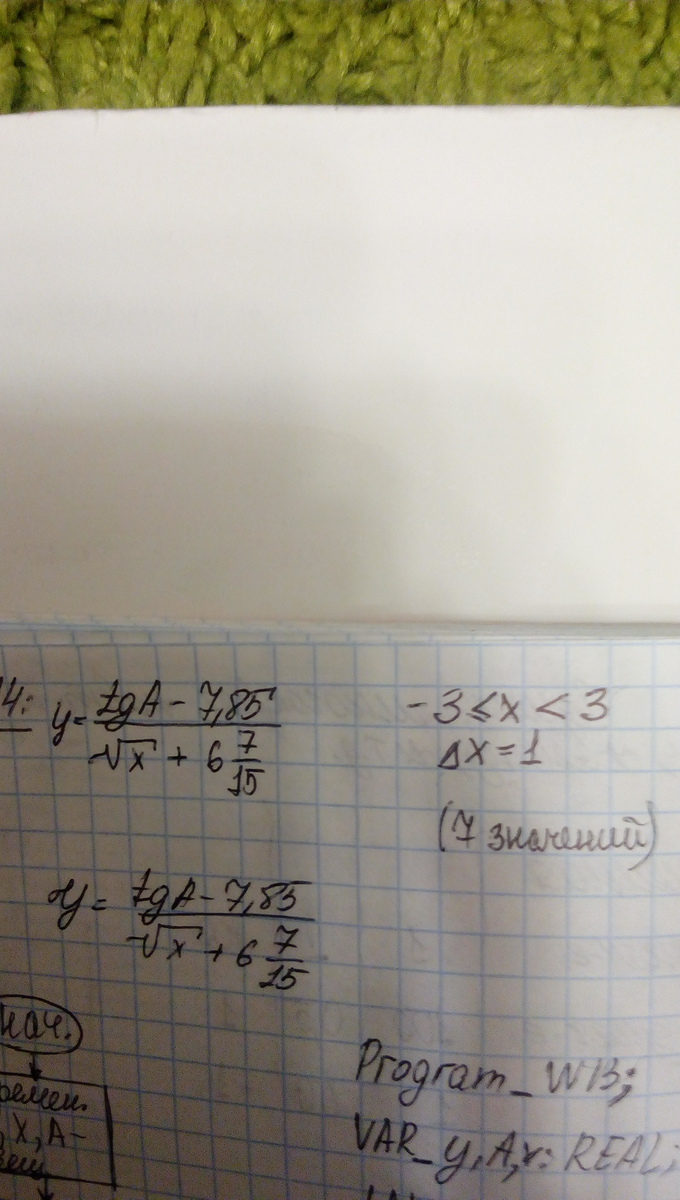 14: y = (tgA - 7,85) / (√x + 6 7/15)
-3 ≤ x < 3
Δx = 1
(7 значений)
y = (tgA - 7,85) / (√x + 6 7/15)
нач.
ремен.
, X, A -
вещ
Program_W13;
VAR_y,A,x: REAL;